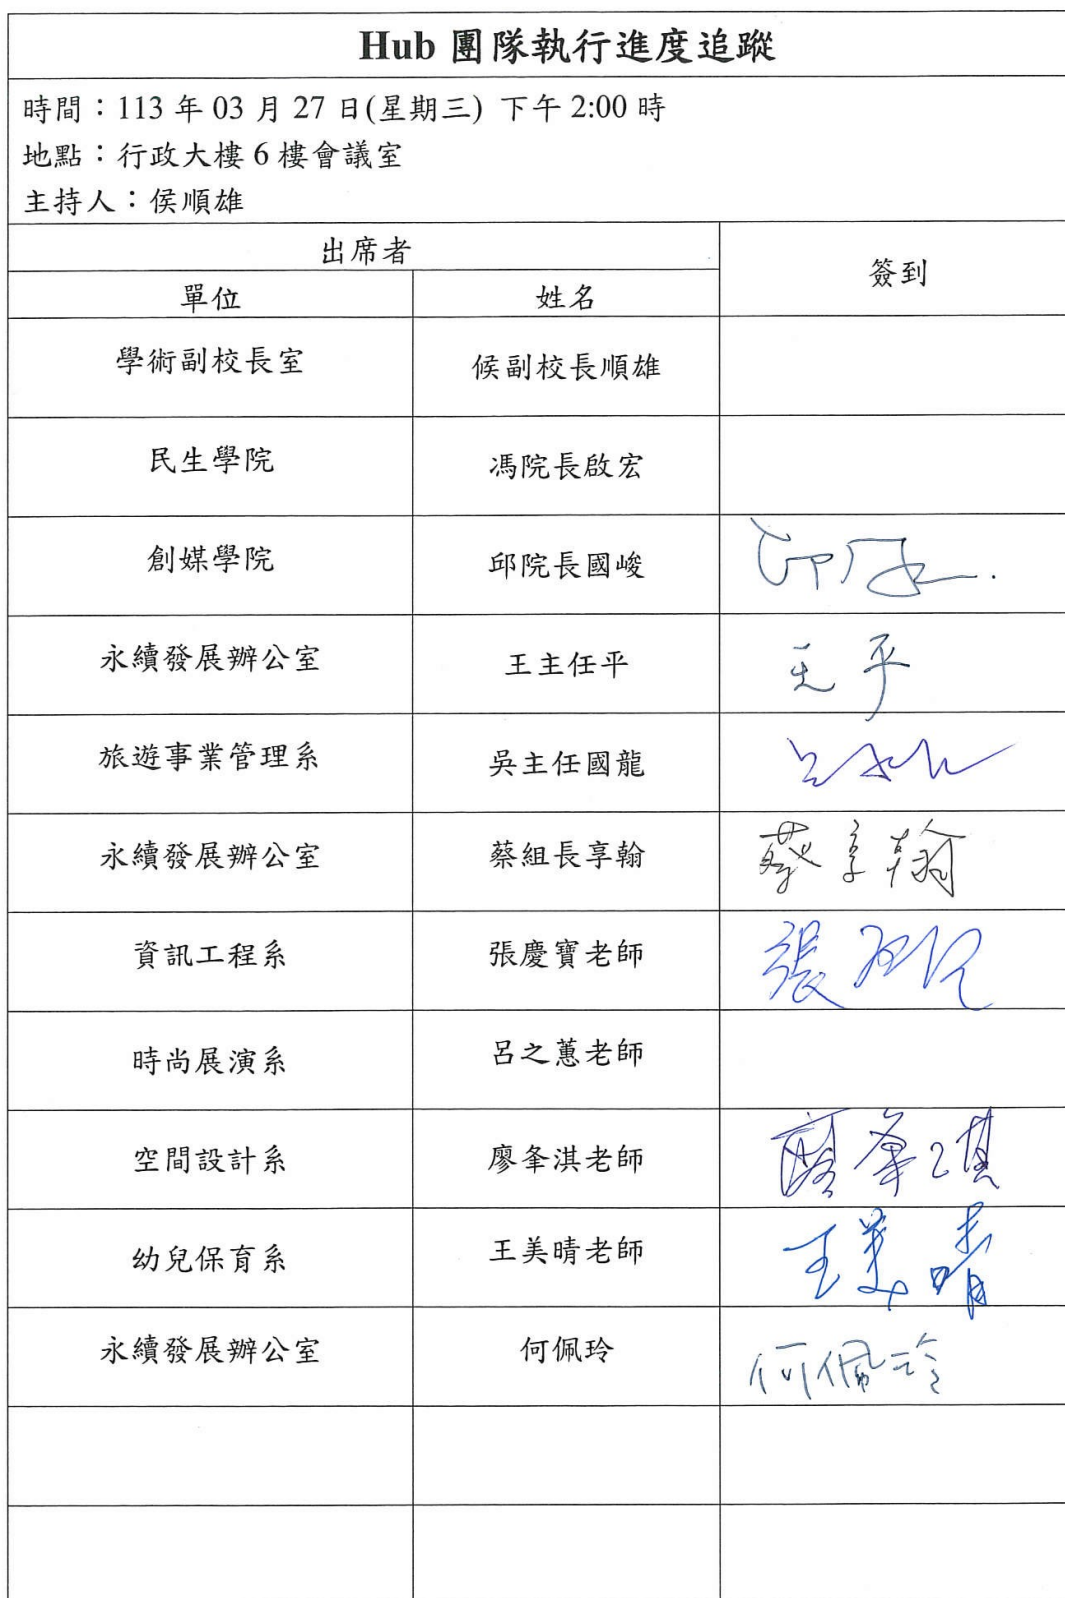 Hub 團隊執行進度追蹤
時間：113 年 03 月 27 日(星期三) 下午 2:00 時
地點：行政大樓 6 樓會議室
主持人：侯順雄
出席者
簽到
單位 姓名
學術副校長室 侯副校長順雄
民生學院 馮院長啟宏
創媒學院 邱院長國峻
永續發展辦公室 王主任平 王平
旅遊事業管理系 吳主任國龍
永續發展辦公室 蔡組長享翰 蔡享翰
資訊工程系 張慶寶老師 張
時尚展演系 呂之蕙老師
空間設計系 廖夆淇老師 廖夆淇
幼兒保育系 王美晴老師 王美晴
永續發展辦公室 何佩玲 何佩玲